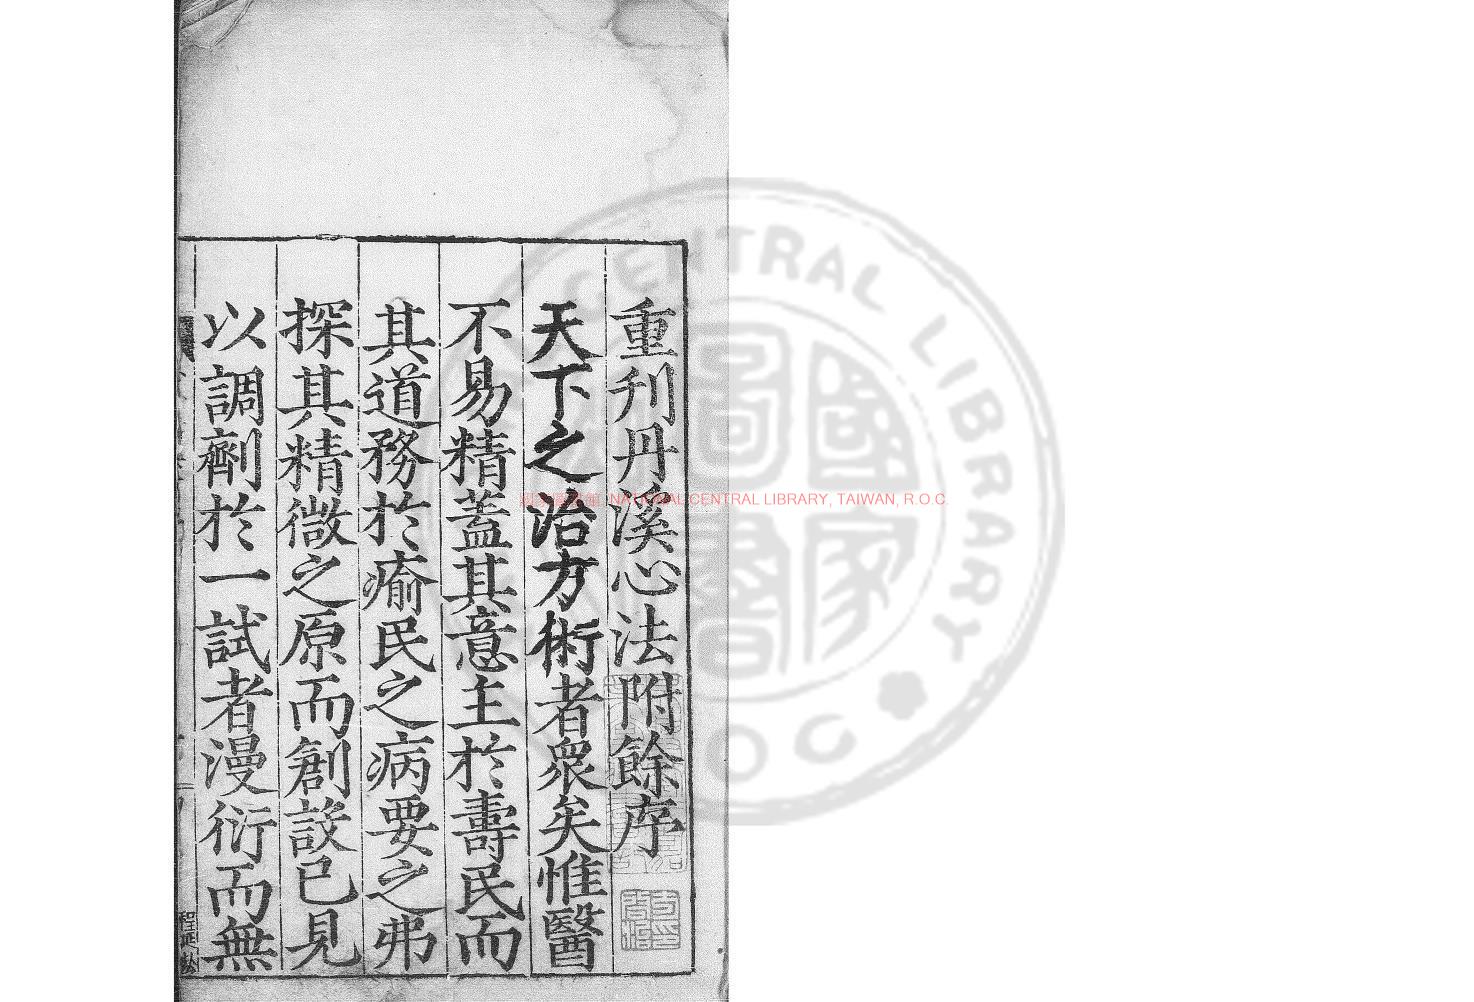 重刋丹溪心法附餘序
天下之治方術者衆矣惟醫
不易精蓋其意主於壽民而
其道務於瘉民之病要之弗
探其精微之原而創設已見
以調劑於一試者漫衍而無
國家圖書館 NATIONAL CENTRAL LIBRARY, TAIWAN, R.O.C.
CENTRAL LIBRARY